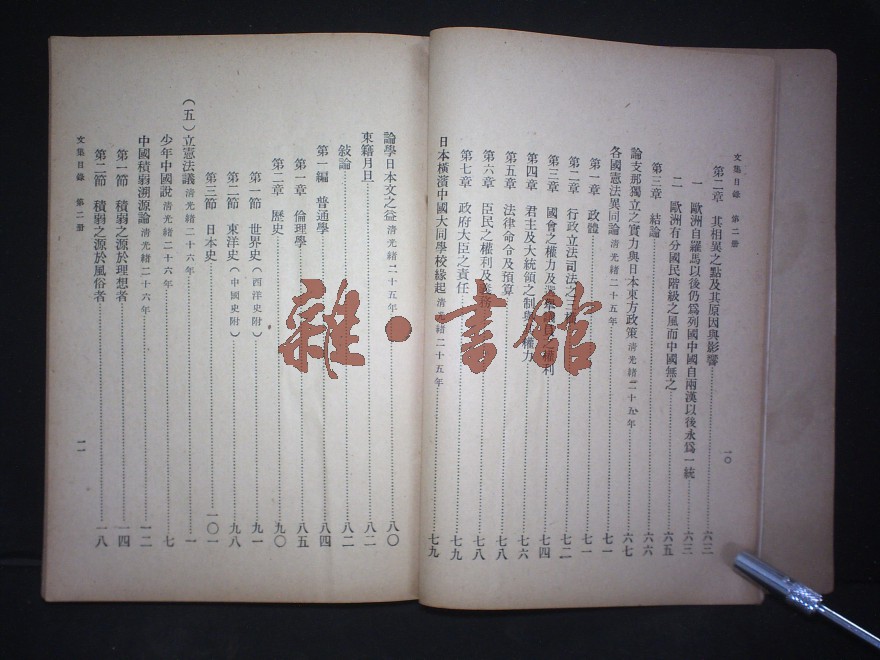 文集目錄 第二册
一〇
第二章 其相異之點及其原因與影響……六三
一 歐洲自羅馬以後仍爲列國中國自兩漢以後永爲一統……六三
二 歐洲有分國民階級之風而中國無之……六五
第三章 結論……六六
論支那獨立之實力與日本東方政策 清光緒二十五年……六七
各國憲法異同論 清光緒二十五年……七一
第一章 政體……七一
第二章 行政立法司法之三權……七二
第三章 國會之權力及 權利……七四
第四章 君主及大統領之制與 權力……七六
第五章 法律命令及預算……七八
第六章 臣民之權利及義務……七八
第七章 政府大臣之責任……七九
日本橫濱中國大同學校緣起 清光緒二十五年……七九
論學日本文之益 清光緒二十五年……八〇
東籍月旦……八二
敍論……八二
第一編 普通學……八四
第一章 倫理學……八五
第二章 歷史……九〇
第一節 世界史(西洋史附)……九一
第二節 東洋史(中國史附)……九八
第三節 日本史……一〇一
(五)立憲法議 清光緒二十六年……一
少年中國說 清光緒二十六年……七
中國積弱溯源論 清光緒二十六年……一二
第一節 積弱之源於理想者……一四
第二節 積弱之源於風俗者……一八
文集目錄 第二册
一一
雜·書館